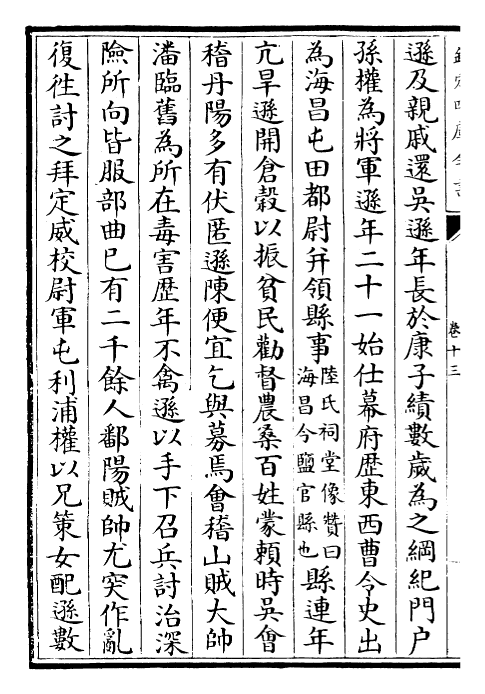 欽定四庫全書
卷十三
遜及親戚還吳遜年長於康子績數歲為之綱紀門户
孫權為將軍遜年二十一始仕幕府歴東西曹令史出
為海昌屯田都尉并領縣事陸氏祠堂像贊曰海昌今鹽官縣也縣連年
亢旱遜開倉穀以振貧民勸督農桑百姓蒙賴時吳會
稽丹陽多有伏匿遜陳便宜乞與募焉會稽山賊大帥
潘臨舊為所在毒害歴年不禽遜以手下召兵討治深
險所向皆服部曲已有二千餘人鄱陽賊帥尤突作亂
復徃討之拜定威校尉軍屯利浦權以兄策女配遜數